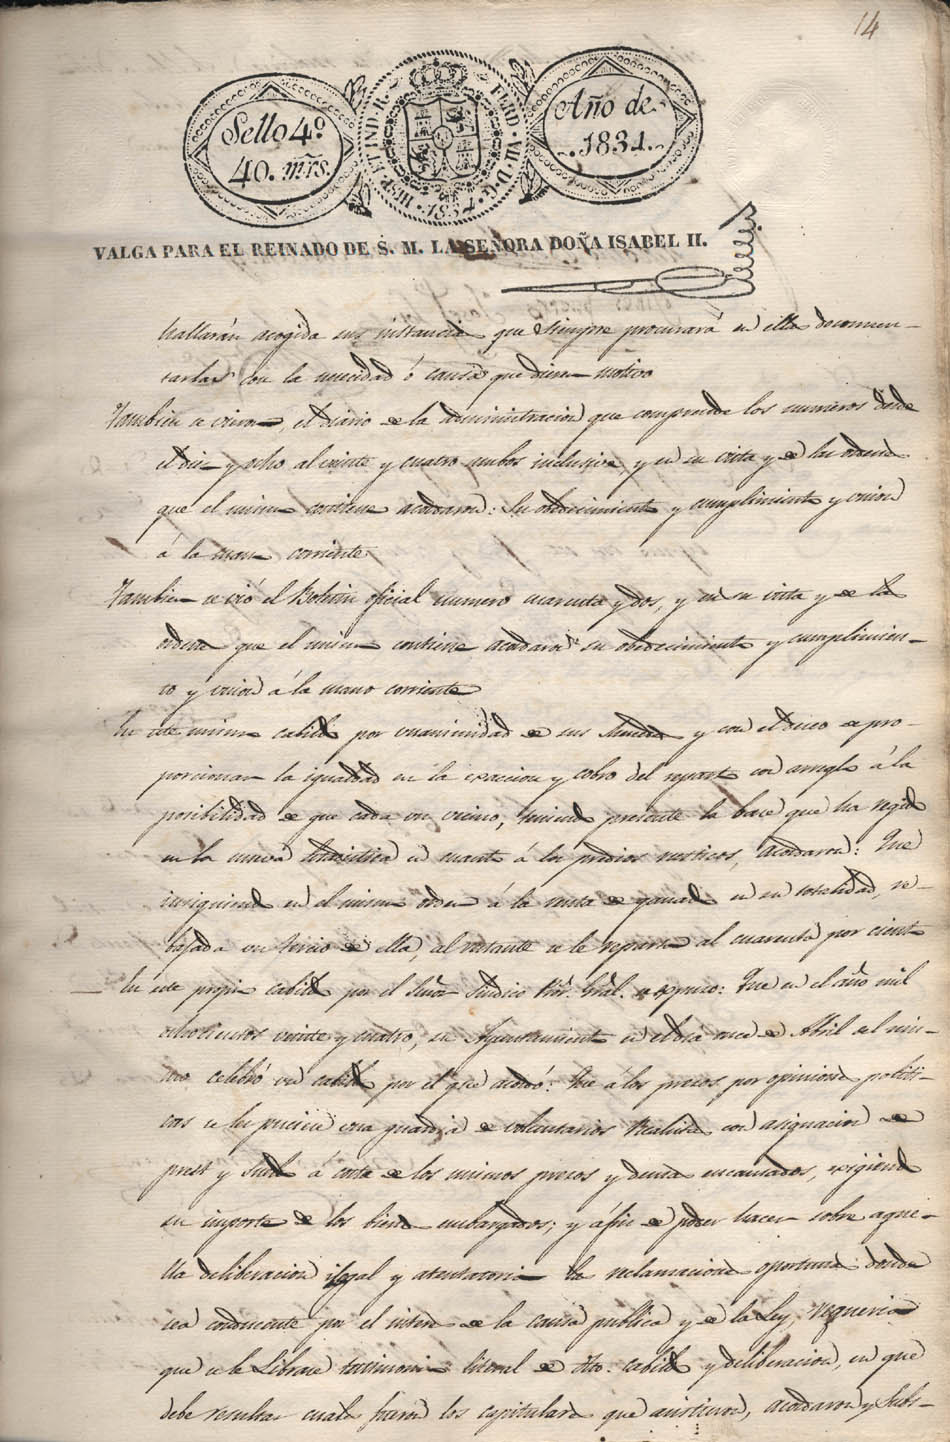 14
Sello 4º
40. mrs.
HISP. ET IND. R. FERD. VII. D. G. 1834.
Año de
1834.
VALGA PARA EL REINADO DE S. M. LA SEÑORA DOÑA ISABEL II.
hallarán acogida sus instancia que siempre procurará en ella documen-
tarlas con la necidad ó causa que dieren motivo
Tambien se vieron, el diario de la administracion que comprende los numeros desde
el diez y ocho al veinte y cuatro ambos inclusive, y en su vista y de las ordenes
que el mismo contiene acordaron: Su obedecimiento y cumplimiento y union
á la mano corriente
Tambien se vió el Boletin oficial numero cuarenta y dos, y en su vista y de la
ordenes que el mismo contiene acordaron su obedecimiento y cumplimien-
to y union á la mano corriente
En este mismo cabildo por unanimidad de sus Mercedes y con el deseo de pro-
porcionar la igualdad en la exaccion y cobro del reparto con arreglo á la
posibilidad de que cada un vecino, teniendo presente la base que ha regido
en la nueva Estadistica en cuanto á los predios rusticos, acordaron: Que
insiguiendo en el mismo orden á la renta de ganado en su totalidad, re-
bajada un tercio de ella, al restante se le reparta al cuarenta por ciento
En este propio cabildo por el Señor Sindico Pror. Gral. se espuso: Que en el año mil
ochocientos veinte y cuatro, su Ayuntamiento en el dia once de Abril del mis-
mo celebró un cabildo por el que acordó: Que á los presos por opiniones politi-
cas se les pusiese una guardia de voluntarios Realistas con asignacion de
prest y sueldo á costa de los mismos presos y demas encausados, exigiendo
su importe de los bienes embargados; y á fin de poder hacer sobre aque-
lla deliberacion ilegal y atentatoria las reclamaciones oportunas donde
sea conducente por el interes de la causa publica y de la Ley, requeria
que se le Librase testimonio literal de dho. cabildo y deliberacion, en que
debe resultar cuales fueron los capitulares que asistieron, acordaron y subs-